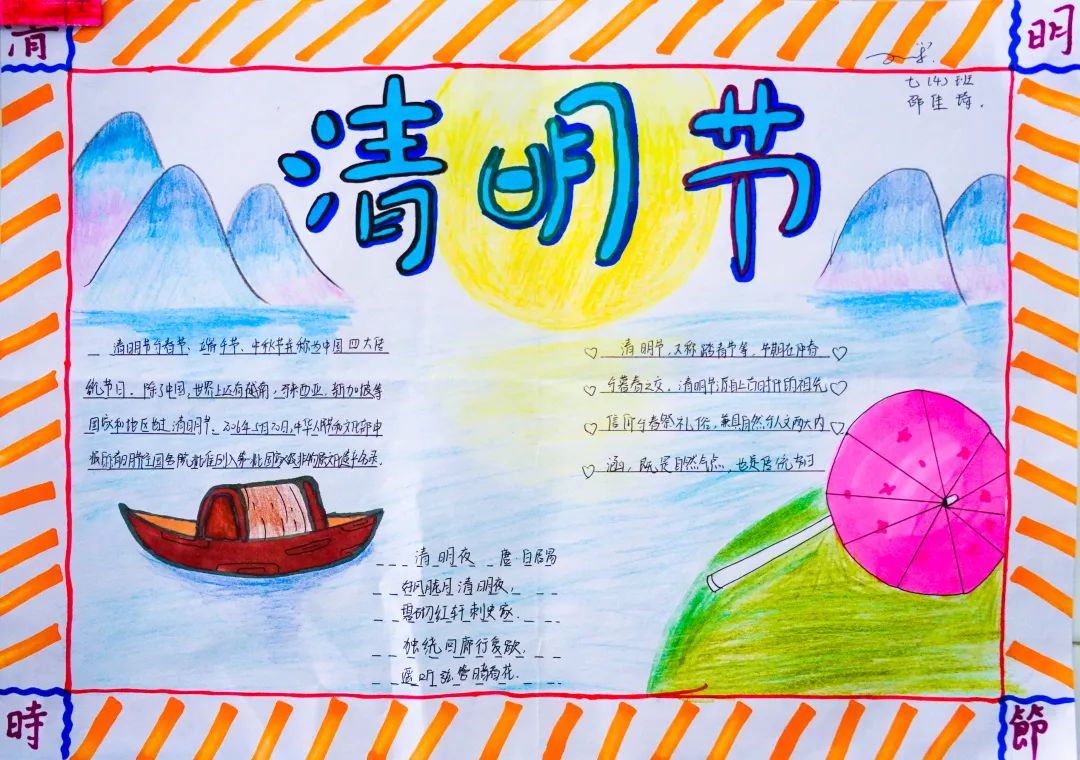 清
明
七(4)班
邵佳琦.
清明节
清明节与春节、端午节、中秋节并称为中国四大传
统节日。除了中国,世界上还有越南、马来西亚、新加坡等
国家和地区也过清明节。2006年5月20日,中华人民共和文化部申
报的清明节国务院批准列入第一批国家级非物质文化遗产名录.
清明节,又称踏青节等,节期在仲春
与暮春之交。清明节源自上古时代的祖先
信仰与春祭礼俗,兼具自然与人文两大内
涵,既是自然节点,也是传统节日
清明夜 唐·白居易
好风胧月清明夜,
碧砌红轩刺史家.
独绕回廊行复歇.
遥听弦管暗看花.
時
節